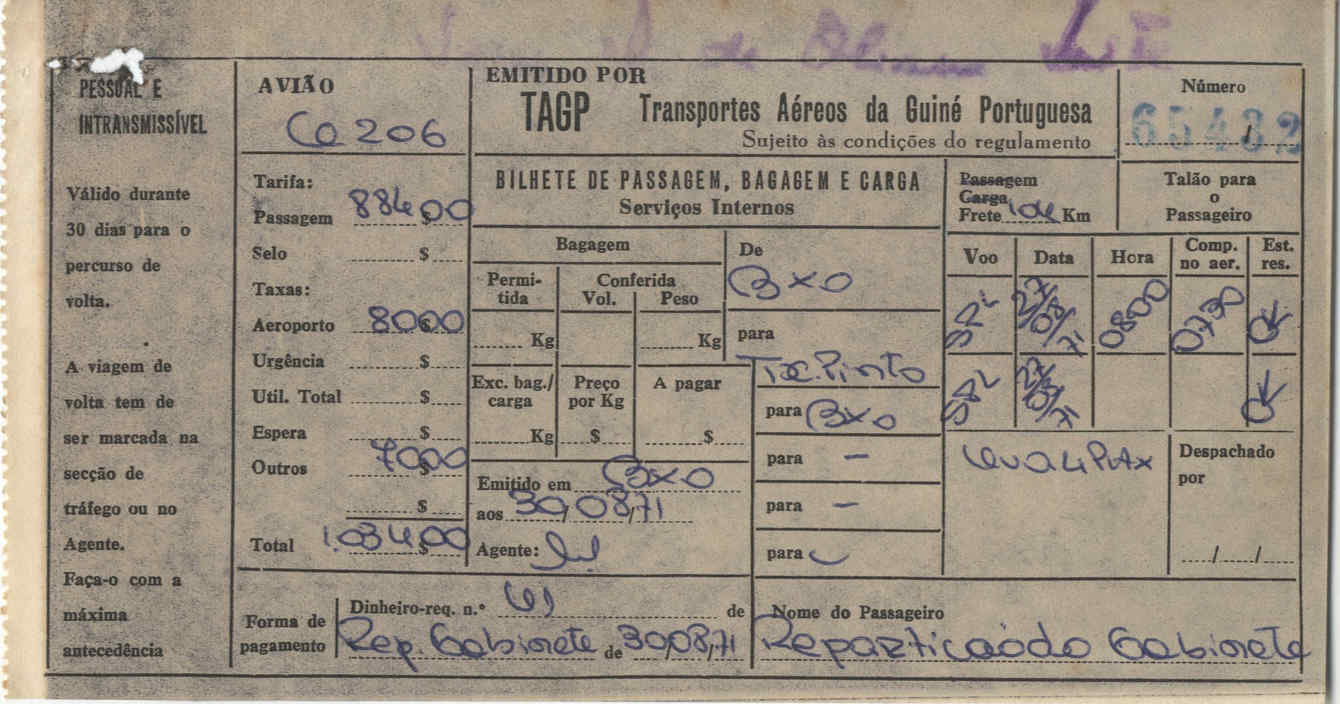 de
PESSOAL E
INTRANSMISSÍVEL
Válido durante
30 dias para o
percurso de
volta.
A viagem de
volta tem de
ser marcada na
secção de
tráfego ou no
Agente.
Faça-o com a
máxima
antecedência
AVIÃO
CO 206
Tarifa:
Passagem 884$00
Selo $
Taxas:
Aeroporto 80$00
Urgência $
Util. Total $
Espera $
Outros 70$00
$
Total 1.034$00
EMITIDO POR
TAGP Transportes Aéreos da Guiné Portuguesa
Sujeito às condições do regulamento
Número
65432
BILHETE DE PASSAGEM, BAGAGEM E CARGA
Serviços Internos
Passagem
Carga
Frete 104 Km
Talão para
o
Passageiro
Bagagem
Permi-
tida
Conferida
Vol. Peso
Kg Kg
Exc. bag./
carga
Preço
por Kg
A pagar
Kg $ $
Emitido em BXO
aos 30/08/71
Agente:
De
BXO
para
Tx. Pinto
para BXO
para -
para -
para
Voo Data Hora Comp.
no aer. Est.
res.
0800 0730 OK
OK
Leva 4 PAX
Despachado
por
/ /
Forma de
pagamento
Dinheiro-req. n.º 61 de
Rep. Gabinete de 30/08/71
Nome do Passageiro
Repartição do Gabinete